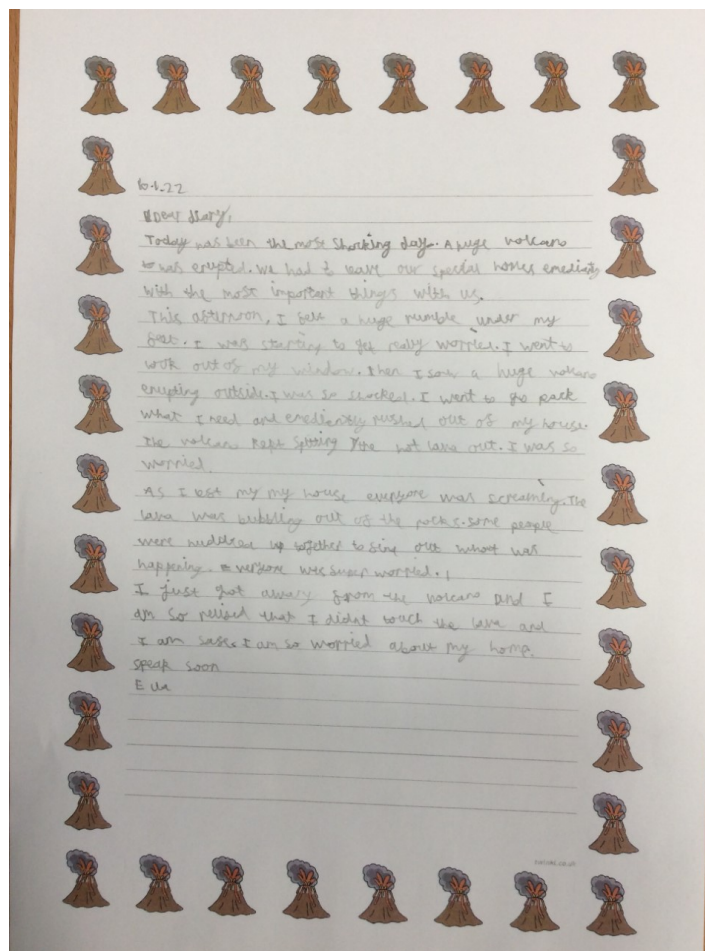 10.1.22
Dear diary,
Today was been the most shocking day. A huge volcano
was erupted. We had to leave our special homes emediatly
with the most important things with us.
This afternoon, I felt a huge rumble under my
feet. I was starting to get really worried. I went to
look out of my window. then I saw a huge volcano
erupting outside. I was so shocked. I went to go pack
what I need and emediantly rushed out of my house.
The volcano kept spitting the hot lava out. I was so
worried.
As I left my my house everyone was screaming. The
lava was bubbling out of the rocks. some people
were huddled up together to out what was
happening. everyone was super worried.
I just got away from the volcano and I
am so relised that I didnt touch the lava and
I am safe. I am so worried about my home.
speak soon